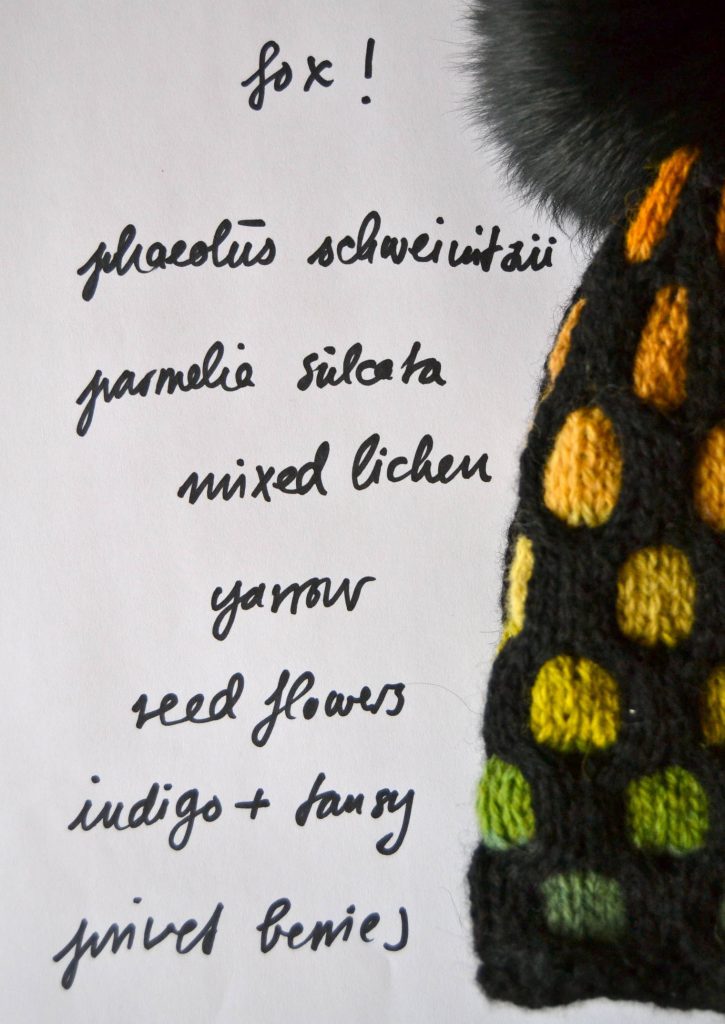 fox!
phaeolūs schweinitzii
parmelia sūlcata
mixed lichen
yarrow
reed flowers
indigo + tansy
privet berries